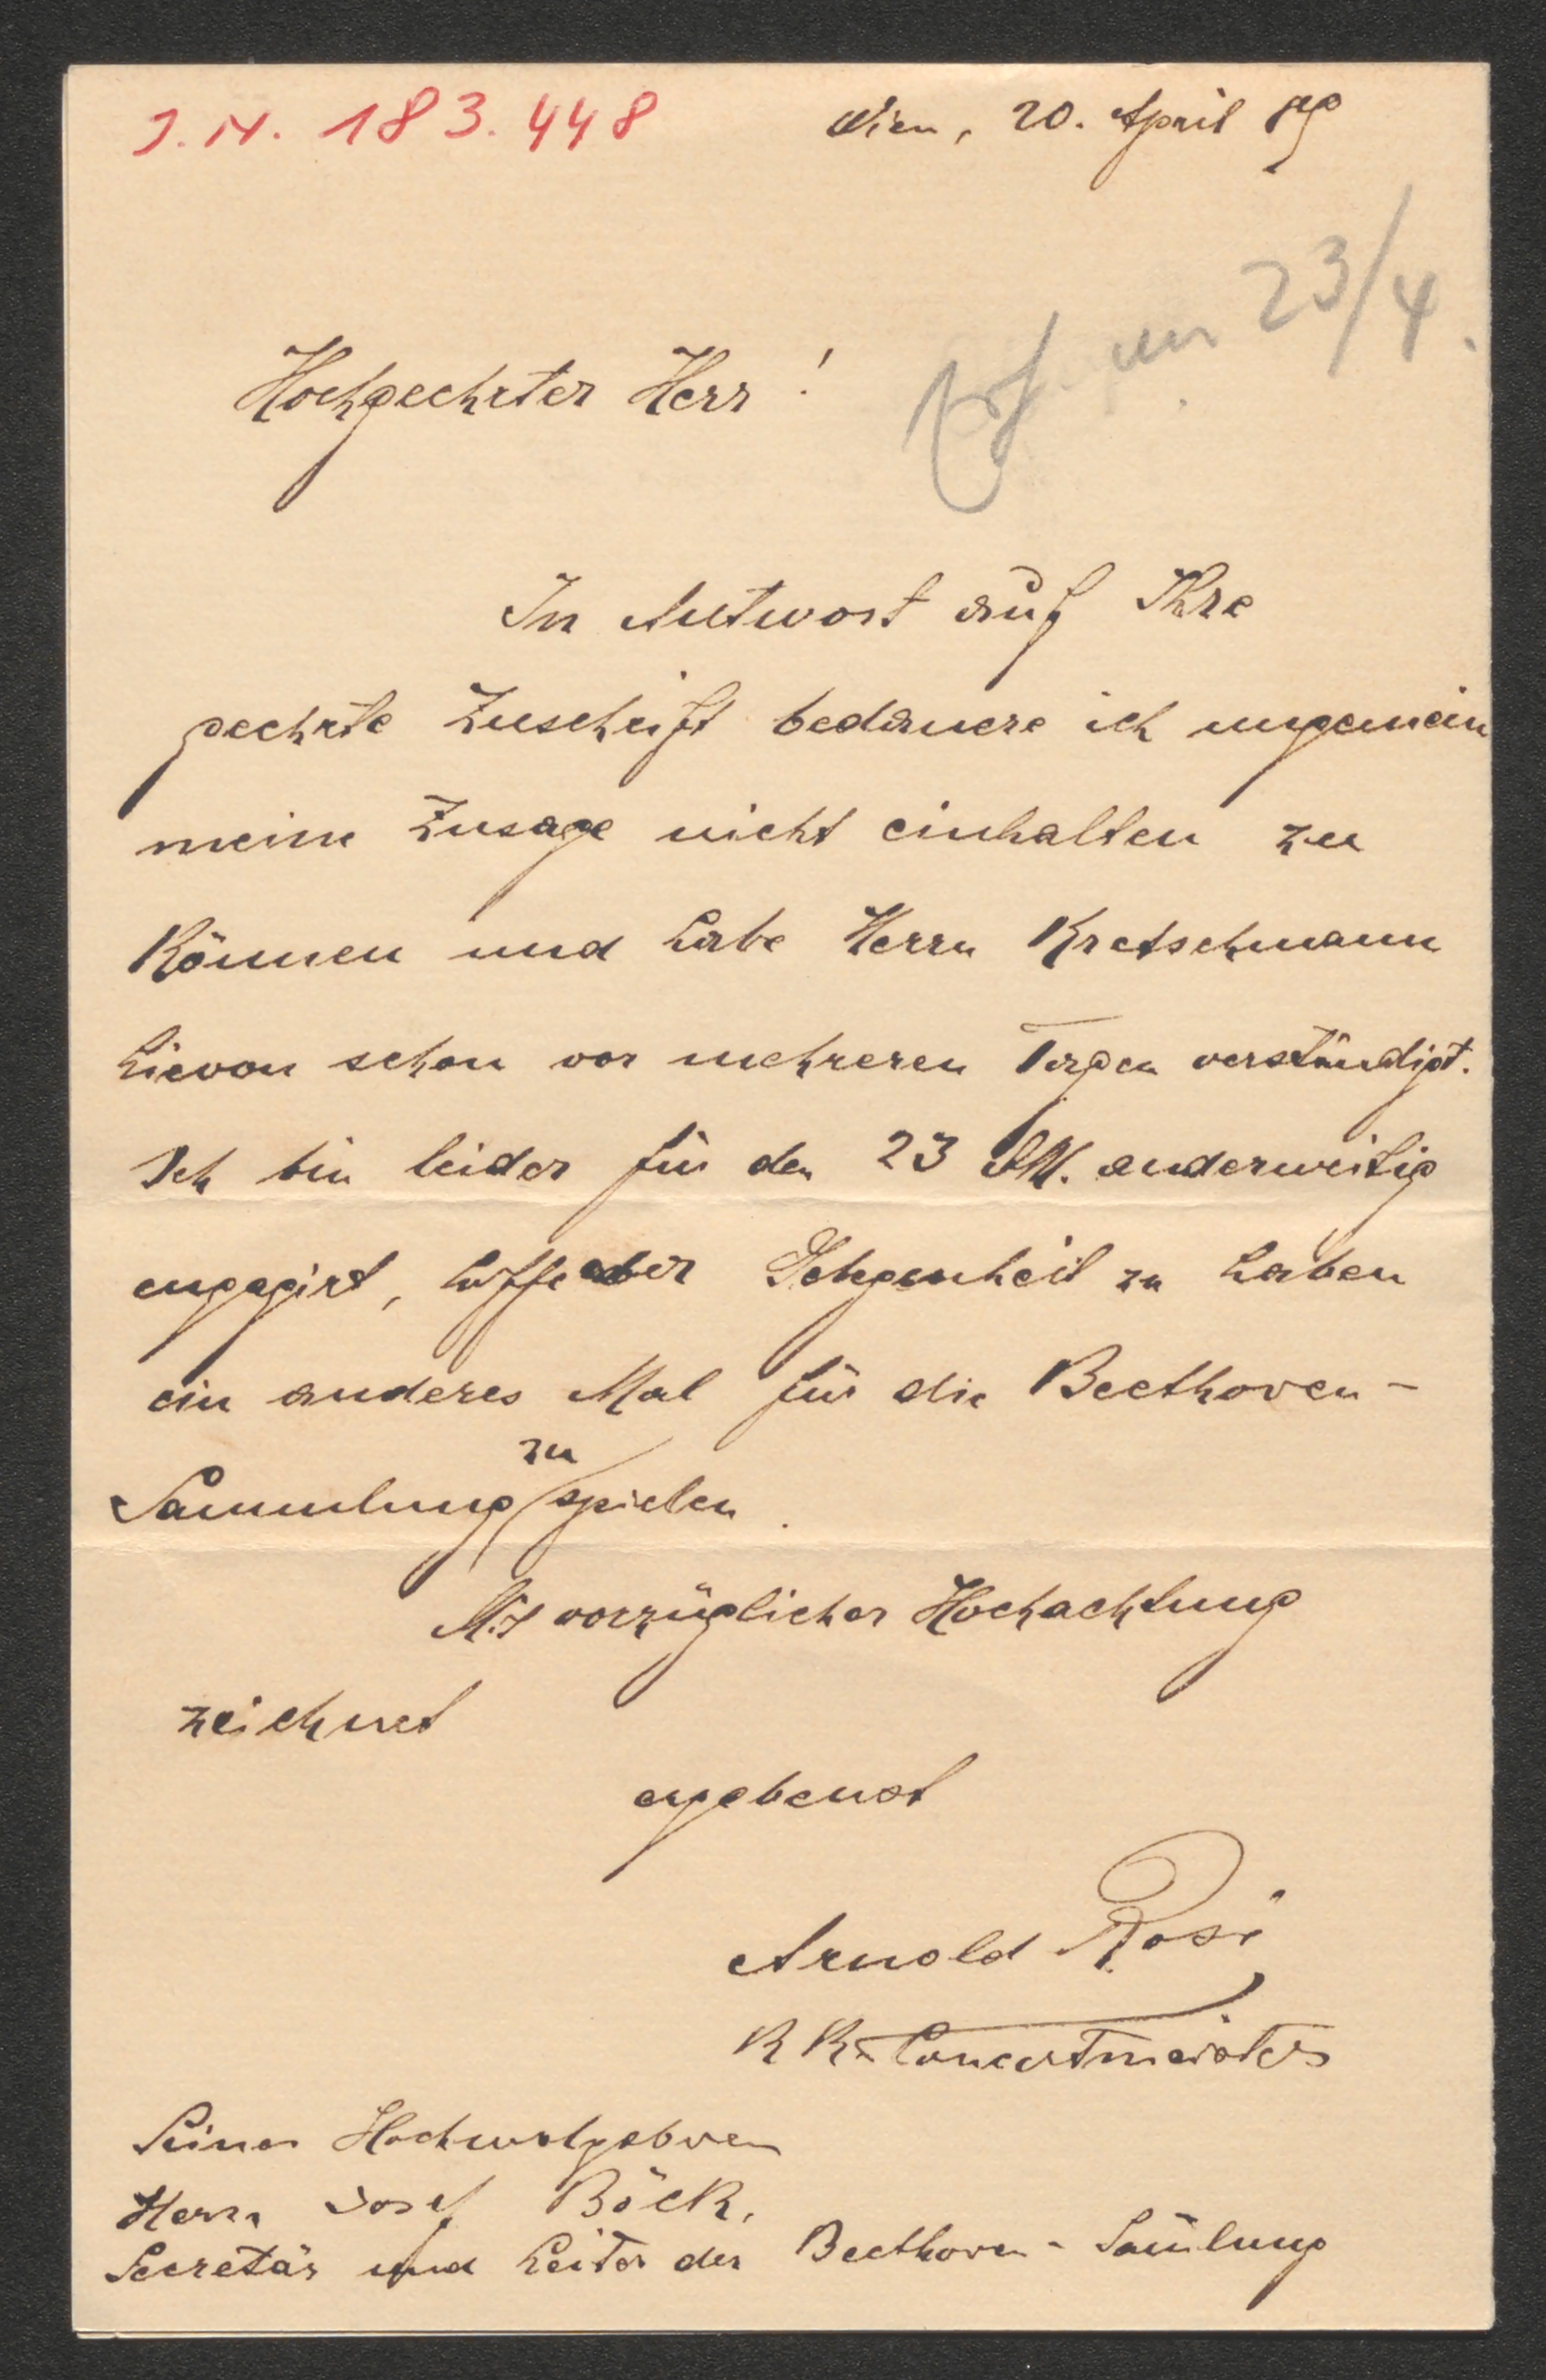 J.N. 183.448
Wien, 20. April 89
23/4.
Hochgeehrter Herr!
In Antwort auf Ihre
geehrte Zuschrift bedauere ich ungemein
meine Zusage nicht einhalten zu
können und habe Herrn Kretschmann
hievon schon vor mehreren Tagen verständigt.
Ich bin leider für den 23 d.M. anderweitig
engagirt, hoffe aber Gelegenheit zu haben
ein anderes Mal für die Beethoven-
zu
Sammlung spielen.
Mit vorzüglicher Hochachtung
zeichnet
ergebenst
Arnold Rosé
KK Concertmeister
Seiner Hochwolgeboren
Herrn Josef Böck,
Secretär und Leiter der Beethoven-Sam̄lung